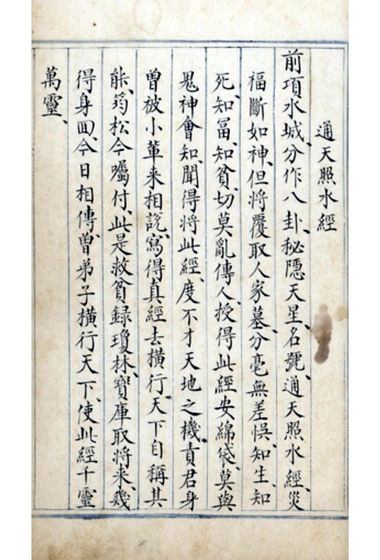 通天照水經
前項水城、分作八卦、秘隱天星名號、通天照水經、災
福斷如神、但將覆取人家墓、分毫無差悮、知生、知
死、知富、知貧、切莫亂傳人、授得此經安綿袋、莫與
鬼神會知聞、得將此經、度不才、天地之機責君身
曽被小輩來相詑、寫得真經去橫行、天下自稱其
能、筠松今囑付、此是救貧録、瓊林寶庫取將來、幾
得身回、今日相傳曽弟子、橫行天下、使此經千靈
萬靈、